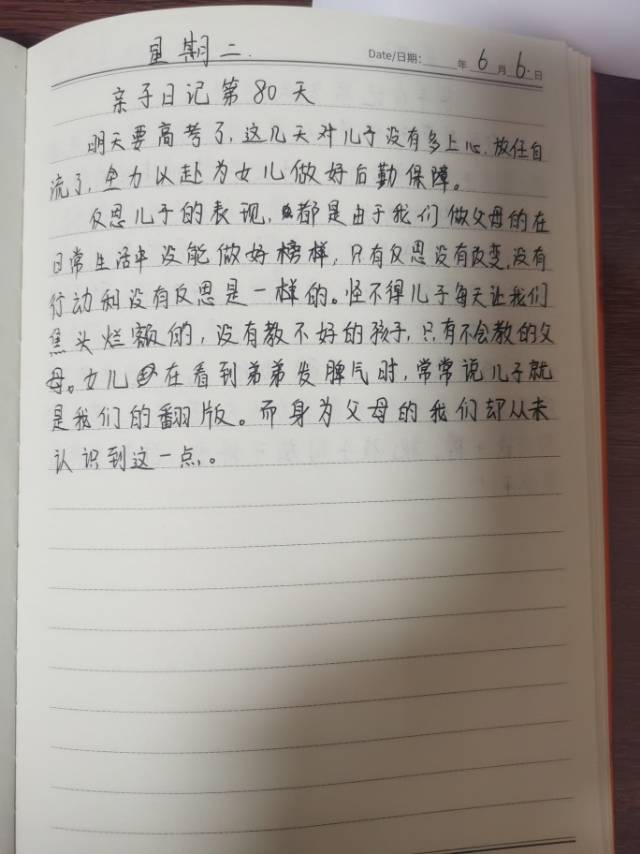 星期二.
Date/日期: 年 6 月 6. 日
亲子日记第80天
明天要高考了,这几天对儿子没有多上心.放任自
流了,全力以赴为女儿做好后勤保障。
反思儿子的表现,都是由于我们做父母的在
日常生活中没能做好榜样,只有反思没有改变,没有
行动和没有反思是一样的。怪不得儿子每天让我们
焦头烂额的,没有教不好的孩子,只有不会教的父
母。女儿在看到弟弟发脾气时,常常说儿子就
是我们的翻版。而身为父母的我们却从未
认识到这一点。